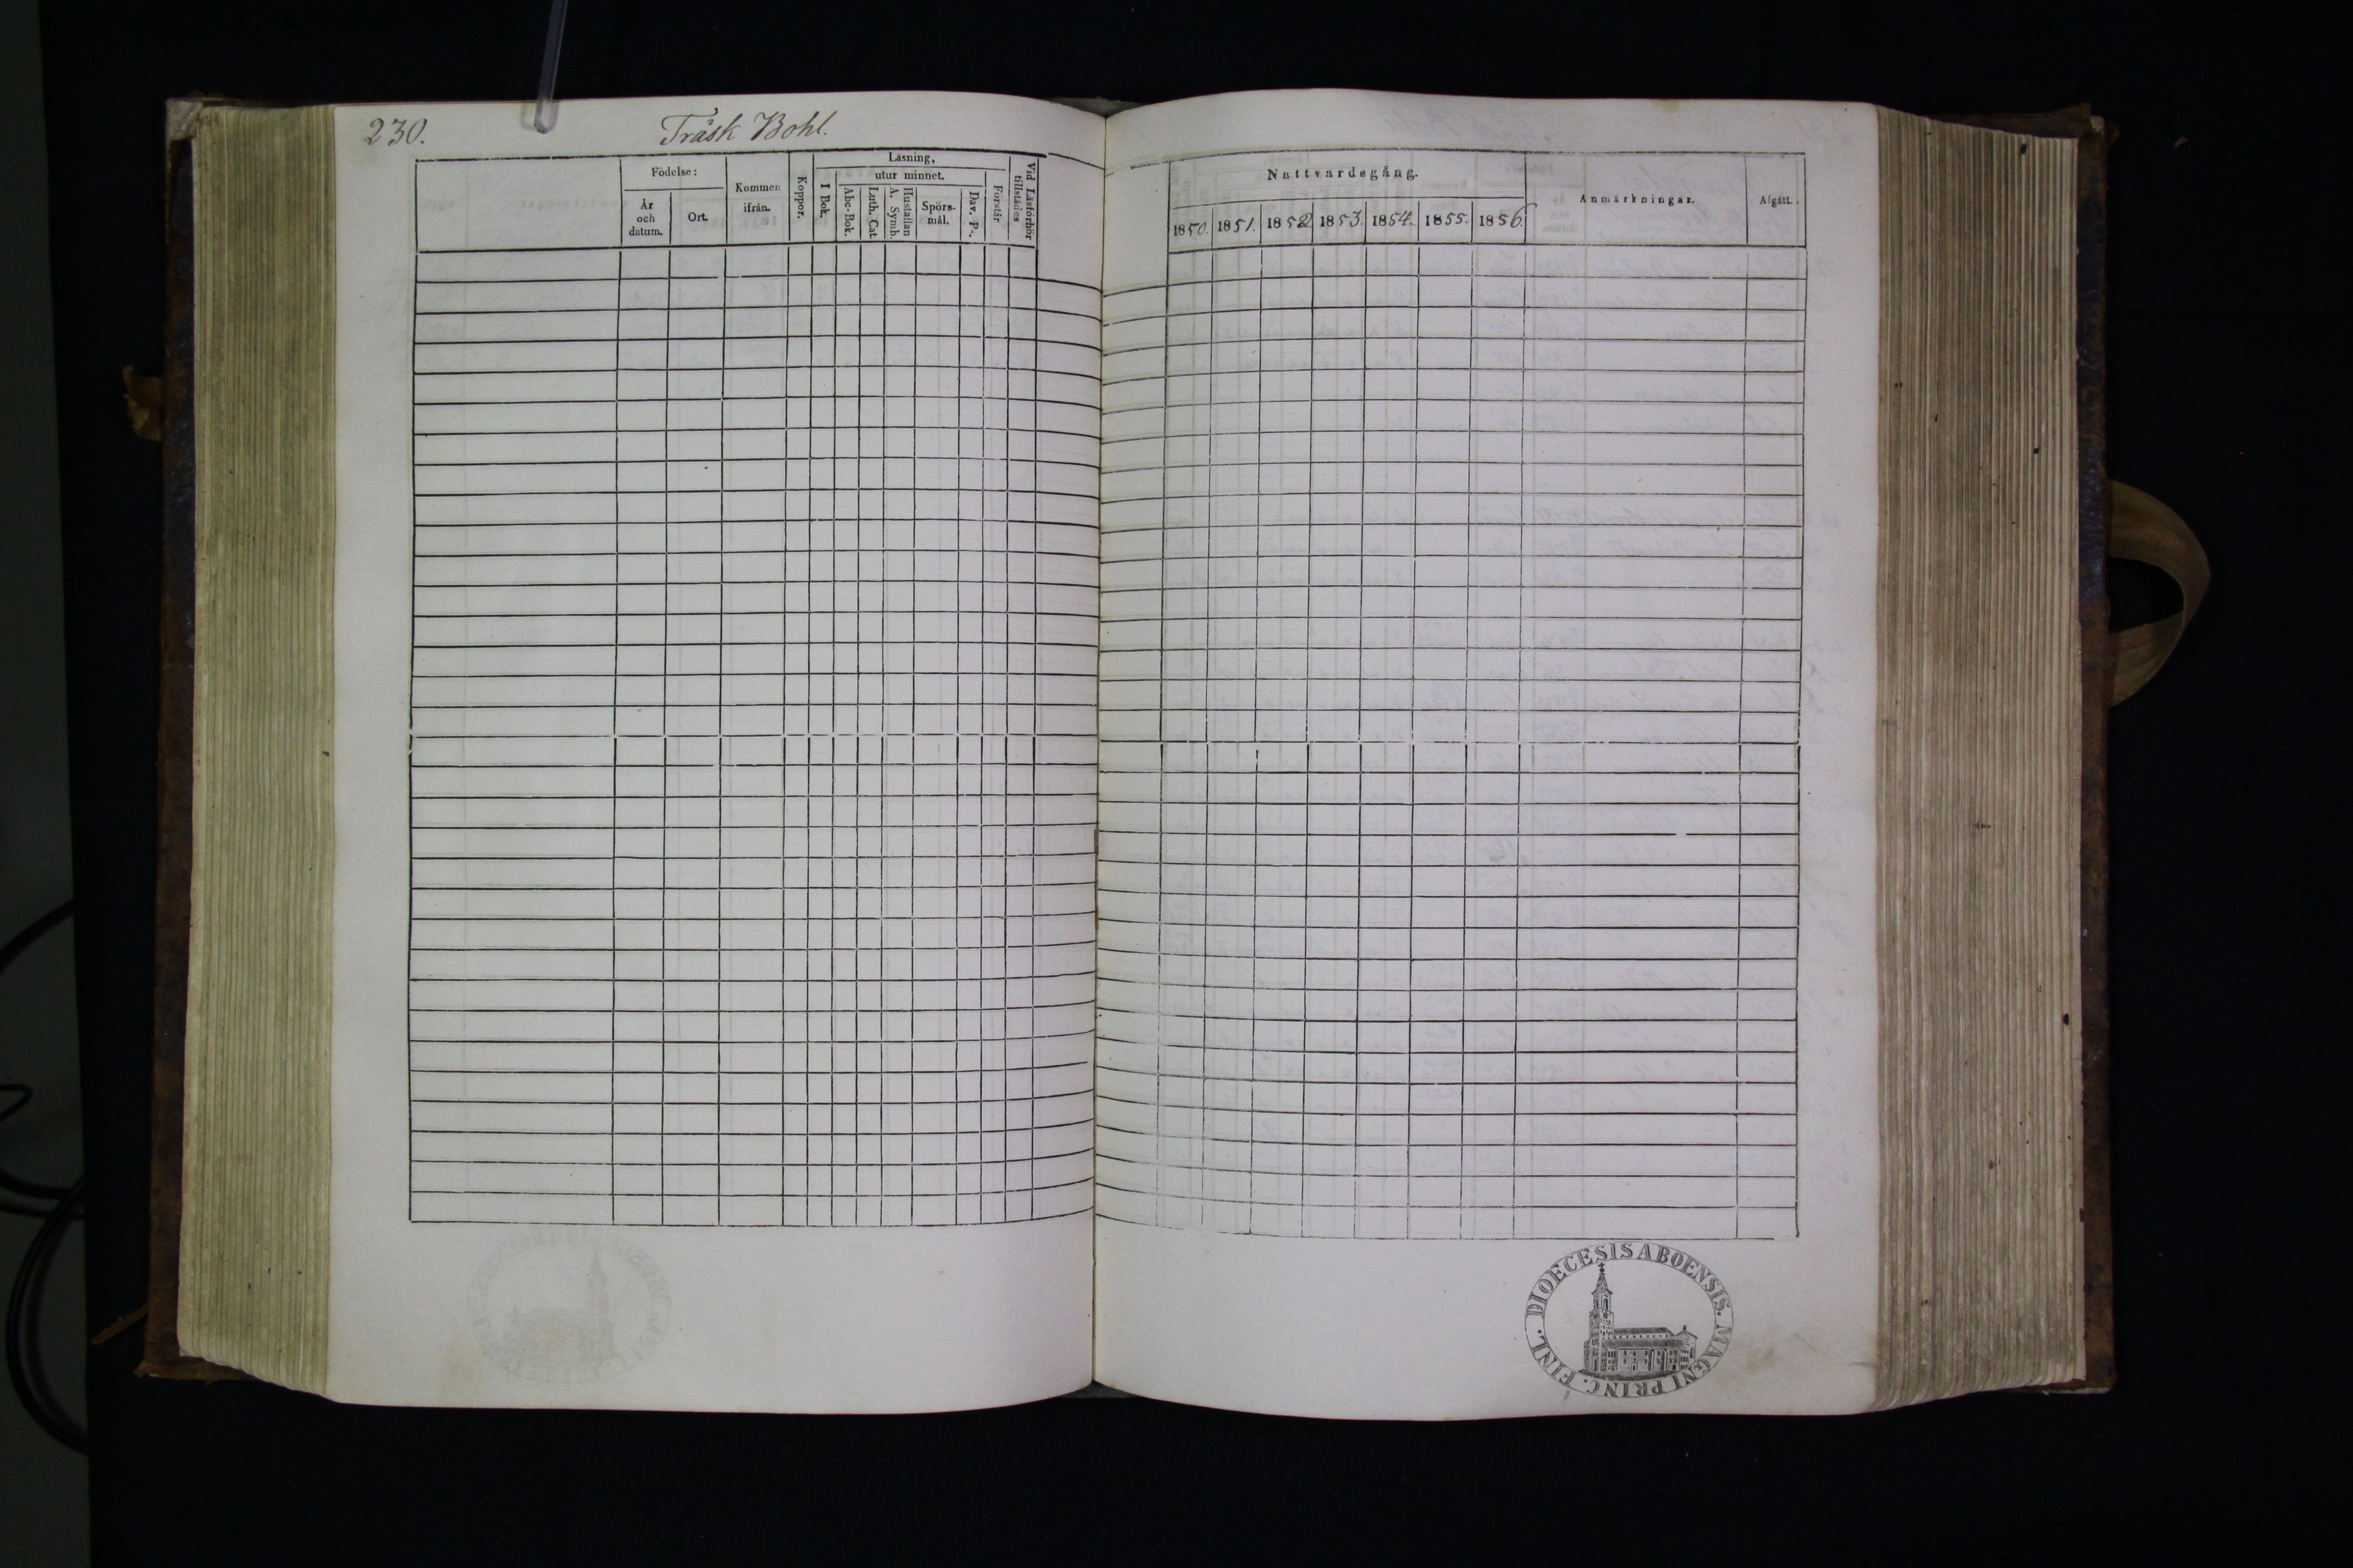 230.
Träsk Bohl.
Födelse:
År
och
datum.
Ort.
Kommen
ifrån.
Koppor.
Läsning,
utur minnet.
I Bok.
Abc-Bok.
Luth. Cat.
A. Symb.
Hustaflan
Spörs-
mål.
Dav. Ps.
Förstår
Vid Läsförhör
tillstädes
Nattvardsgång.
1850.
1851.
1852
1853.
1854.
1855.
1856.
Anmärkningar.
Afgått.
DIOECESIS ABOENSIS. MAGNI PRINC. FINL.